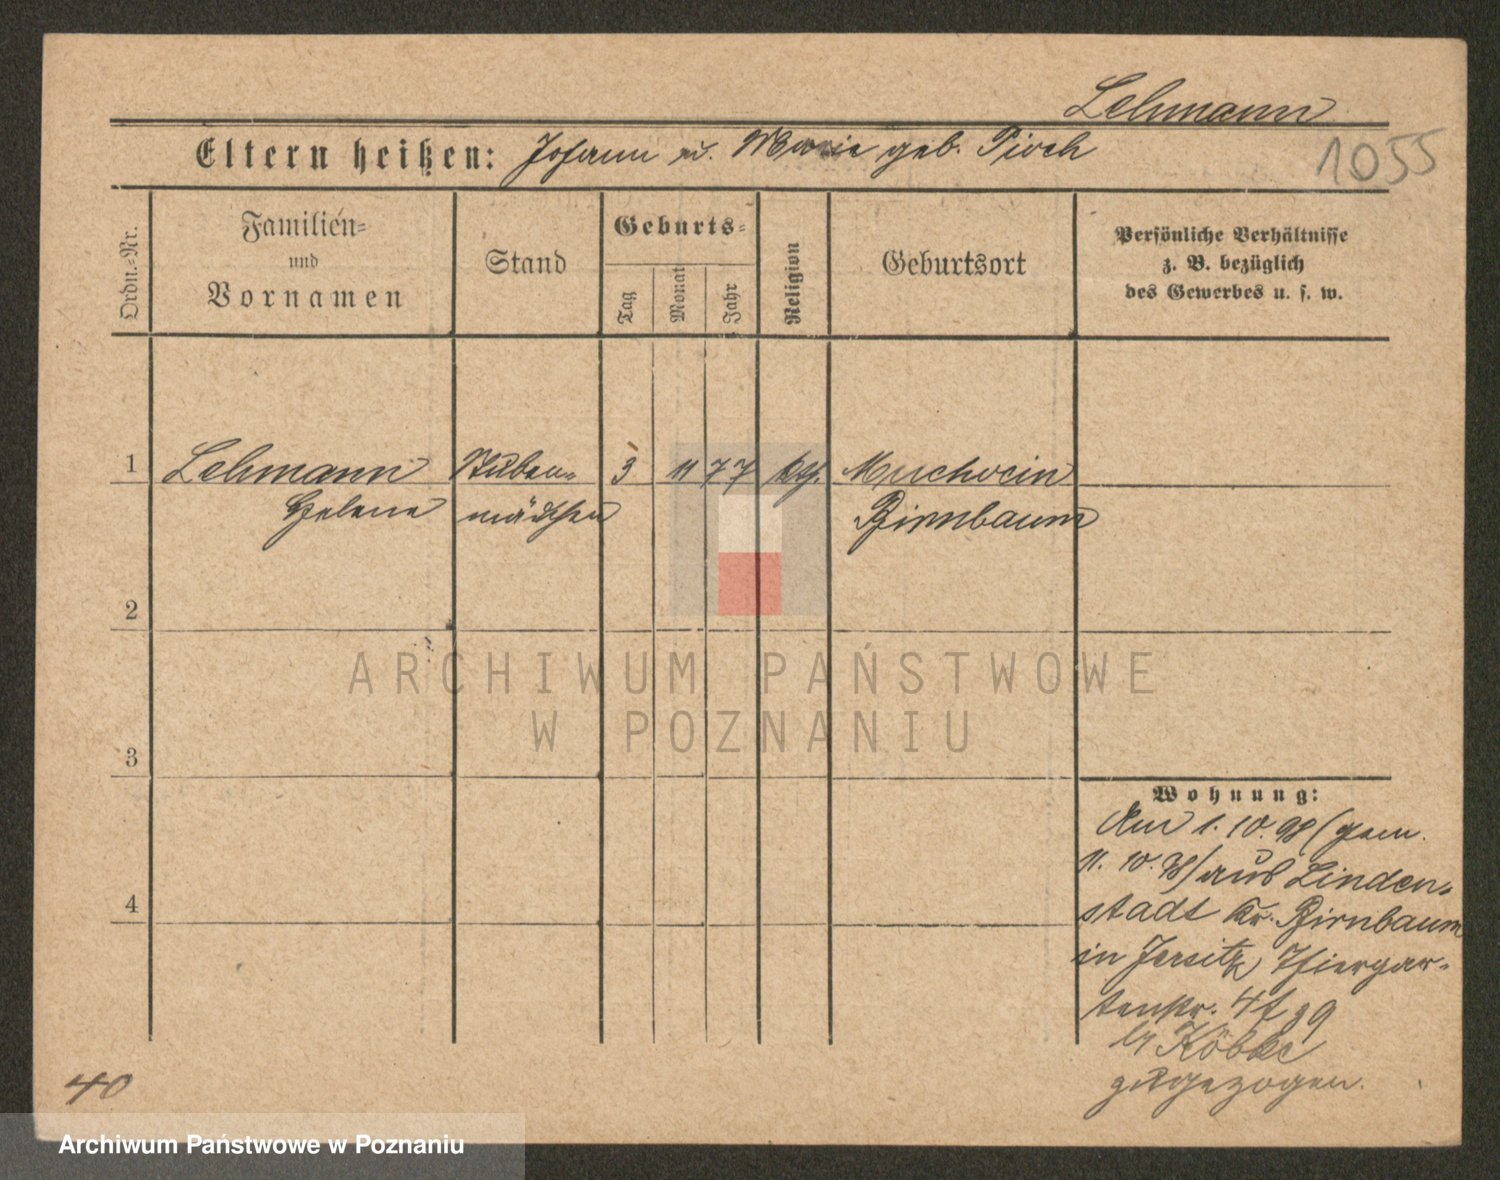 Lehmann
1055
Eltern heißen: Johann u. Marie geb. Pioch
Ordn.-Nr.
Familien-
und
Vornamen
Stand
Geburts-
Tag
Monat
Jahr
Religion
Geburtsort
Persönliche Verhältnisse
z. B. bezüglich
des Gewerbes u. s. w.
1 Lehmann Stuben- 3 11 77 kth. Muchocin
Helene mädchen Birnbaum
2
ARCHIWUM PAŃSTWOWE
W POZNANIU
3
Wohnung:
Am 1. 10. 98 (gem.
11. 10. 98) aus Linden-
4
stadt Kr. Birnbaum
in Jersitz, Thiergar-
tenstr. 4
Köbke
zugezogen.
40
Archiwum Państwowe w Poznaniu